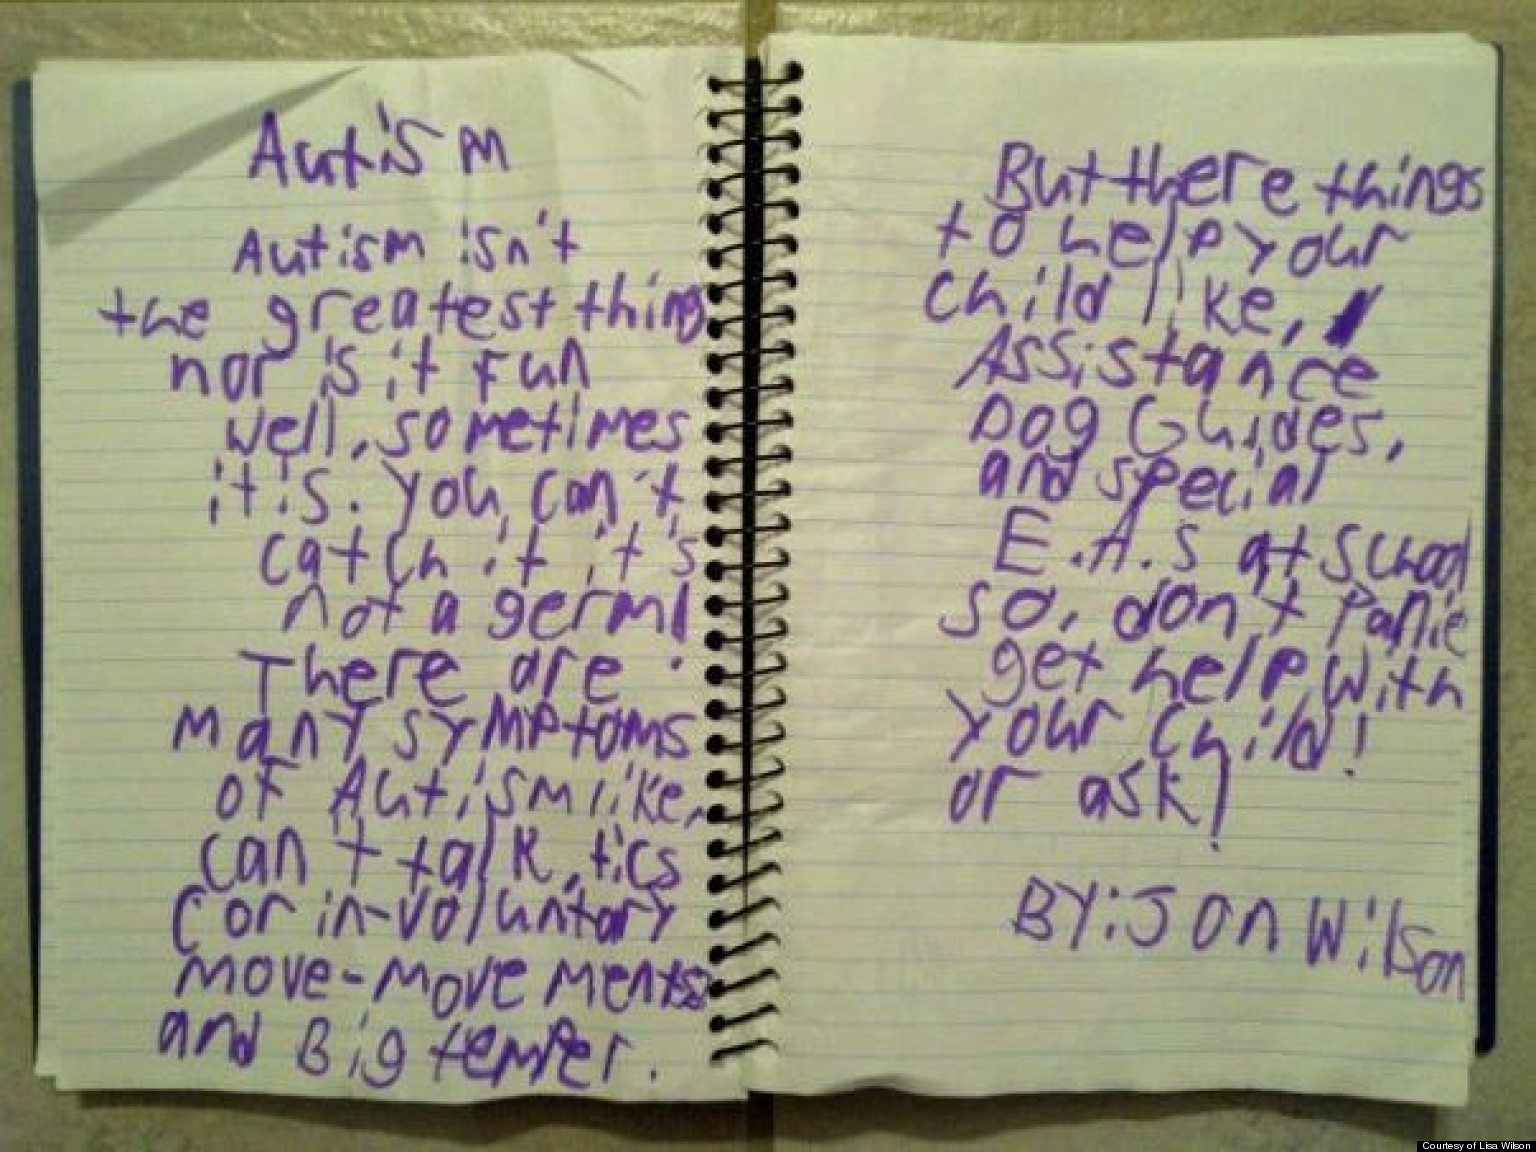 Autism
Autism isn't
the greatest thing
nor is it fun
well, sometimes
it is. you can't
catch it it's
not a germ!
There are
many symptoms
of Autism like,
can't talk, tics
(or in-voluntary
move-movements)
and Big temper.
But there things
to help your
child like,
Assistance
Dog Guides,
and special
E.A.s at School
so, don't Panic
get help with
your child!
or ask!
BY: Jon Wilson
Courtesy of Lisa Wilson